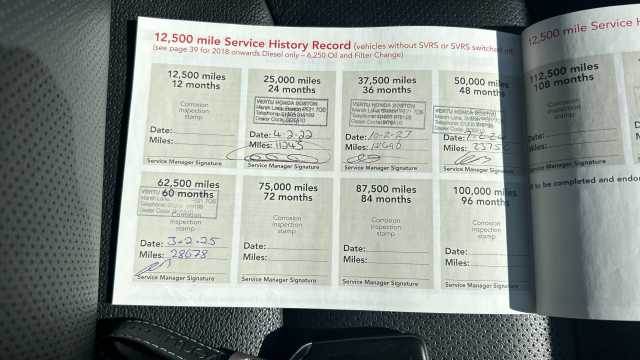 12,500 mile Service History Record (vehicles without SVRS or SVRS switched
(see page 39 for 2018 onwards Diesel only – 6,250 Oil and Filter Change)
12,500 miles
12 months
Corrosion
inspection
stamp
Date:
Miles:
Service Manager Signature
25,000 miles
24 months
VERTU HONDA BOSTON
Date: 4-2-22
Miles: 11245
Service Manager Signature
37,500 miles
36 months
VERTU HONDA BOSTON
Date:
Miles:
Service Manager Signature
50,000 miles
48 months
VERTU HONDA
Date:
Miles:
Service Manager Signature
62,500 miles
60 months
VERTU
Corrosion
inspection
stamp
Date: 3-2-25
Miles: 28678
Service Manager Signature
75,000 miles
72 months
Corrosion
inspection
stamp
Date:
Miles:
Service Manager Signature
87,500 miles
84 months
Corrosion
inspection
stamp
Date:
Miles:
Service Manager Signature
100,000 miles
96 months
Corrosion
inspection
stamp
Date:
Miles:
Service Manager Signature
12,500 mile Service H
112,500 miles
108 months
Corrosion
inspection
stamp
Date:
Miles:
Service Manager Signature
to be completed and endor